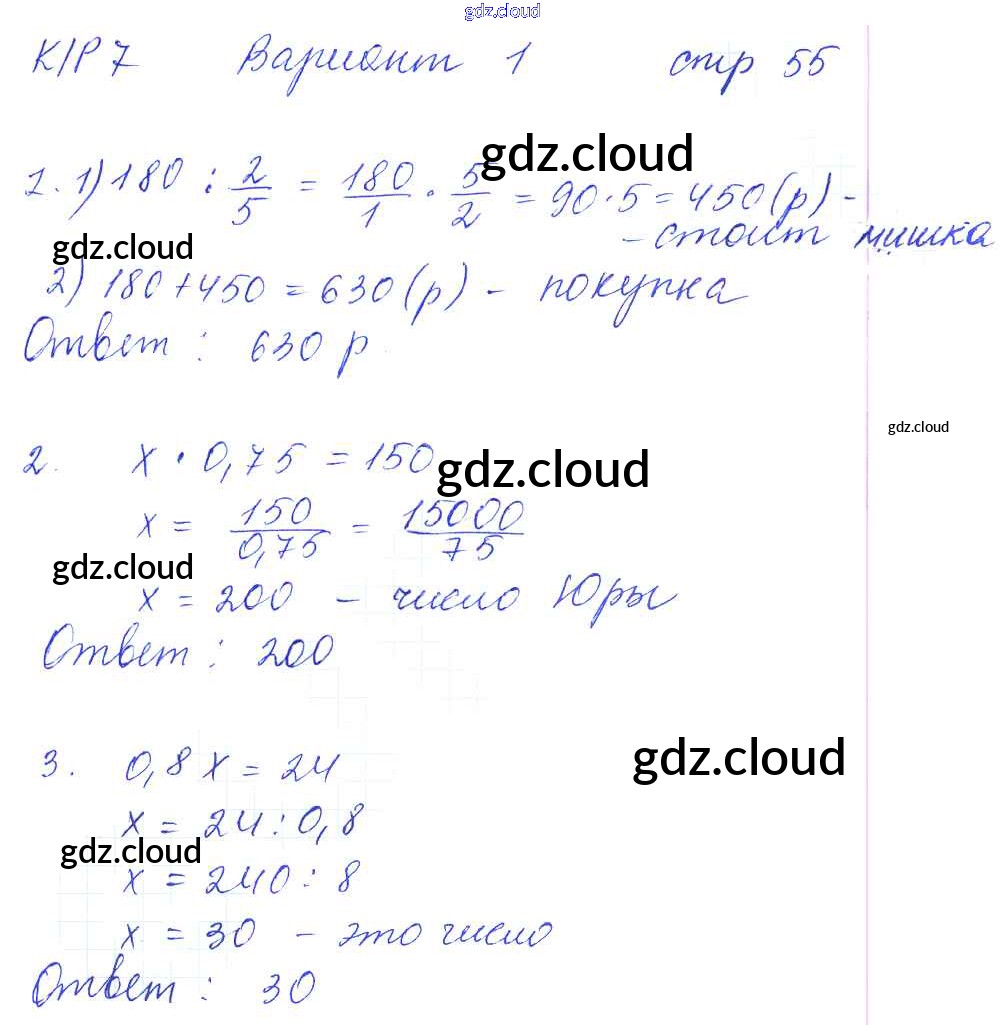 gdz.cloud
К/Р 7 Вариант 1 стр 55
gdz.cloud
1. 1) 180 : 2/5 = 180/1 · 5/2 = 90 · 5 = 450 (р) -
- стоит мишка
gdz.cloud
2) 180 + 450 = 630 (р) - покупка
Ответ : 630 р.
gdz.cloud
2. x · 0,75 = 150
gdz.cloud
x = 150/0,75 = 15000/75
gdz.cloud
x = 200 - число Юры
Ответ : 200
3. 0,8 x = 24
gdz.cloud
x = 24 : 0,8
gdz.cloud
x = 240 : 8
x = 30 - это число
Ответ : 30